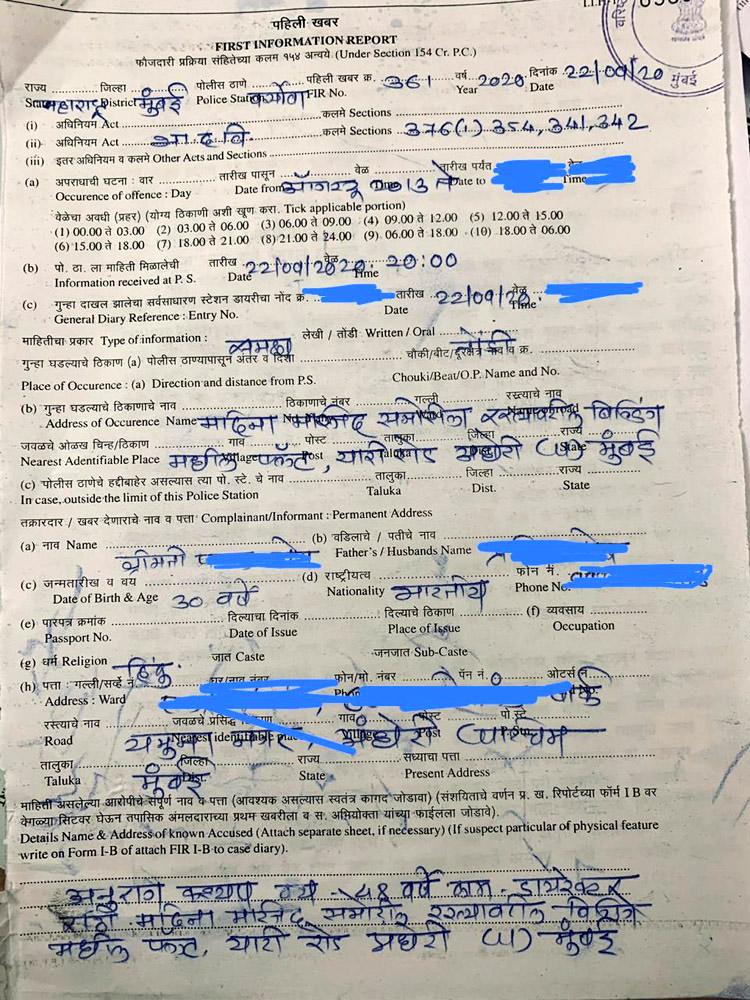 पहिली खबर
FIRST INFORMATION REPORT
फौजदारी प्रक्रिया संहितेच्या कलम १५४ अन्वये (Under Section 154 Cr. P.C.)
मुंबई
राज्य ........ जिल्हा ........ पोलीस ठाणे ........ पहिली खबर क्र. 361 वर्ष 2020 दिनांक 22/09/20
State महाराष्ट्र District मुंबई Police Station FIR No. Year Date
(i) अधिनियम Act ........ कलमे Sections ........
(ii) अधिनियम Act भा.द.वि. कलमे Sections 376(1) 354, 341, 342
(iii) इतर अधिनियम व कलमे Other Acts and Sections ........
(a) अपराधाची घटना : वार ........ तारीख पासून ........ वेळ ........ तारीख पर्यंत
Occurence of offence : Day Date from ऑगस्ट 2013 ते Date to Time
वेळेचा अवधी (प्रहर) (योग्य ठिकाणी अशी खूण करा. Tick applicable portion)
(1) 00.00 ते 03.00 (2) 03.00 ते 06.00 (3) 06.00 ते 09.00 (4) 09.00 ते 12.00 (5) 12.00 ते 15.00
(6) 15.00 ते 18.00 (7) 18.00 ते 21.00 (8) 21.00 ते 24.00 (9) 06.00 ते 18.00 (10) 18.00 ते 06.00
(b) पो. ठा. ला माहिती मिळालेची तारीख 22/09/2020 वेळ 20:00
Information received at P. S. Date Time
(c) गुन्हा दाखल झालेचा सर्वसाधारण स्टेशन डायरीचा नोंद क्र. तारीख 22/09/20 वेळ
General Diary Reference : Entry No. Date Time
माहितीचा प्रकार Type of information : लेखी / तोंडी Written / Oral तोंडी
गुन्हा घडल्याचे ठिकाण (a) पोलीस ठाण्यापासून अंतर व दिशा ........ चौकी/बीट/दुरक्षेत्र नाव व क्र.
Place of Occurence : (a) Direction and distance from P.S. Chouki/Beat/O.P. Name and No.
(b) गुन्हा घडल्याचे ठिकाणाचे नाव ........ ठिकाणाचे नंबर ........ गल्ली ........ रस्त्याचे नाव
Address of Occurence Name मदिना मस्जिद समोरील रस्त्यावरील बिल्डिंग
जवळचे ओळख चिन्ह/ठिकाण ........ गाव ........ पोस्ट ........ तालुका ........ जिल्हा ........ राज्य
Nearest Adentifiable Place Village Post Taluka State मधील फ्लॅट, यारी रोड अंधेरी (प) मुंबई
(c) पोलीस ठाणेचे हद्दीबाहेर असल्यास त्या पो. स्टे. चे नाव ........ तालुका ........ जिल्हा ........ राज्य
In case, outside the limit of this Police Station Taluka Dist. State
तक्रारदार / खबर देणाराचे नाव व पत्ता Complainant/Informant : Permanent Address
(a) नाव Name ........ (b) वडिलाचे / पतीचे नाव
श्रीमती Father's / Husbands Name
(c) जन्मतारीख व वय ........ (d) राष्ट्रीयत्य ........ फोन नं.
Date of Birth & Age 30 वर्षे Nationality भारतीय Phone No.
(e) पारपत्र क्रमांक ........ दिल्याचा दिनांक ........ दिल्याचे ठिकाण ........ (f) व्यवसाय
Passport No. Date of Issue Place of Issue Occupation
(g) धर्म Religion हिंदु. जात Caste जनजात Sub-Caste
(h) पत्ता : गल्ली/सर्व्हे नं. घर/नाव नंबर फोन/मो. नंबर पॅन नं.
Address : Ward
रस्त्याचे नाव जवळचे प्रसिद्ध गाव पोस्ट
Road Nearest identifiable place Village Post यमुना नगर, अंधेरी पश्चिम
तालुका ........ जिल्हा ........ राज्य ........ सध्याचा पत्ता
Taluka मुंबई Dist. State Present Address
माहिती असलेल्या आरोपीचे संपूर्ण नाव व पत्ता (आवश्यक असल्यास स्वतंत्र कागद जोडावा) (संशयिताचे वर्णन प्र. ख. रिपोर्टच्या फॉर्म I B वर
वेगळ्या सिटवर घेऊन तपासिक अंमलदाराच्या प्रथम खबरीला व स. अभियोक्ता यांच्या फाईलला जोडावे).
Details Name & Address of known Accused (Attach separate sheet, if necessary) (If suspect particular of physical feature
write on Form I-B of attach FIR I-B to case diary).
अनुराग कश्यप वय - 48 वर्षे काम - डायरेक्टर
राह मदिना मस्जिद समोरील रस्त्यावरील बिल्डिंग
मधील फ्लॅट, यारी रोड अंधेरी (प) मुंबई